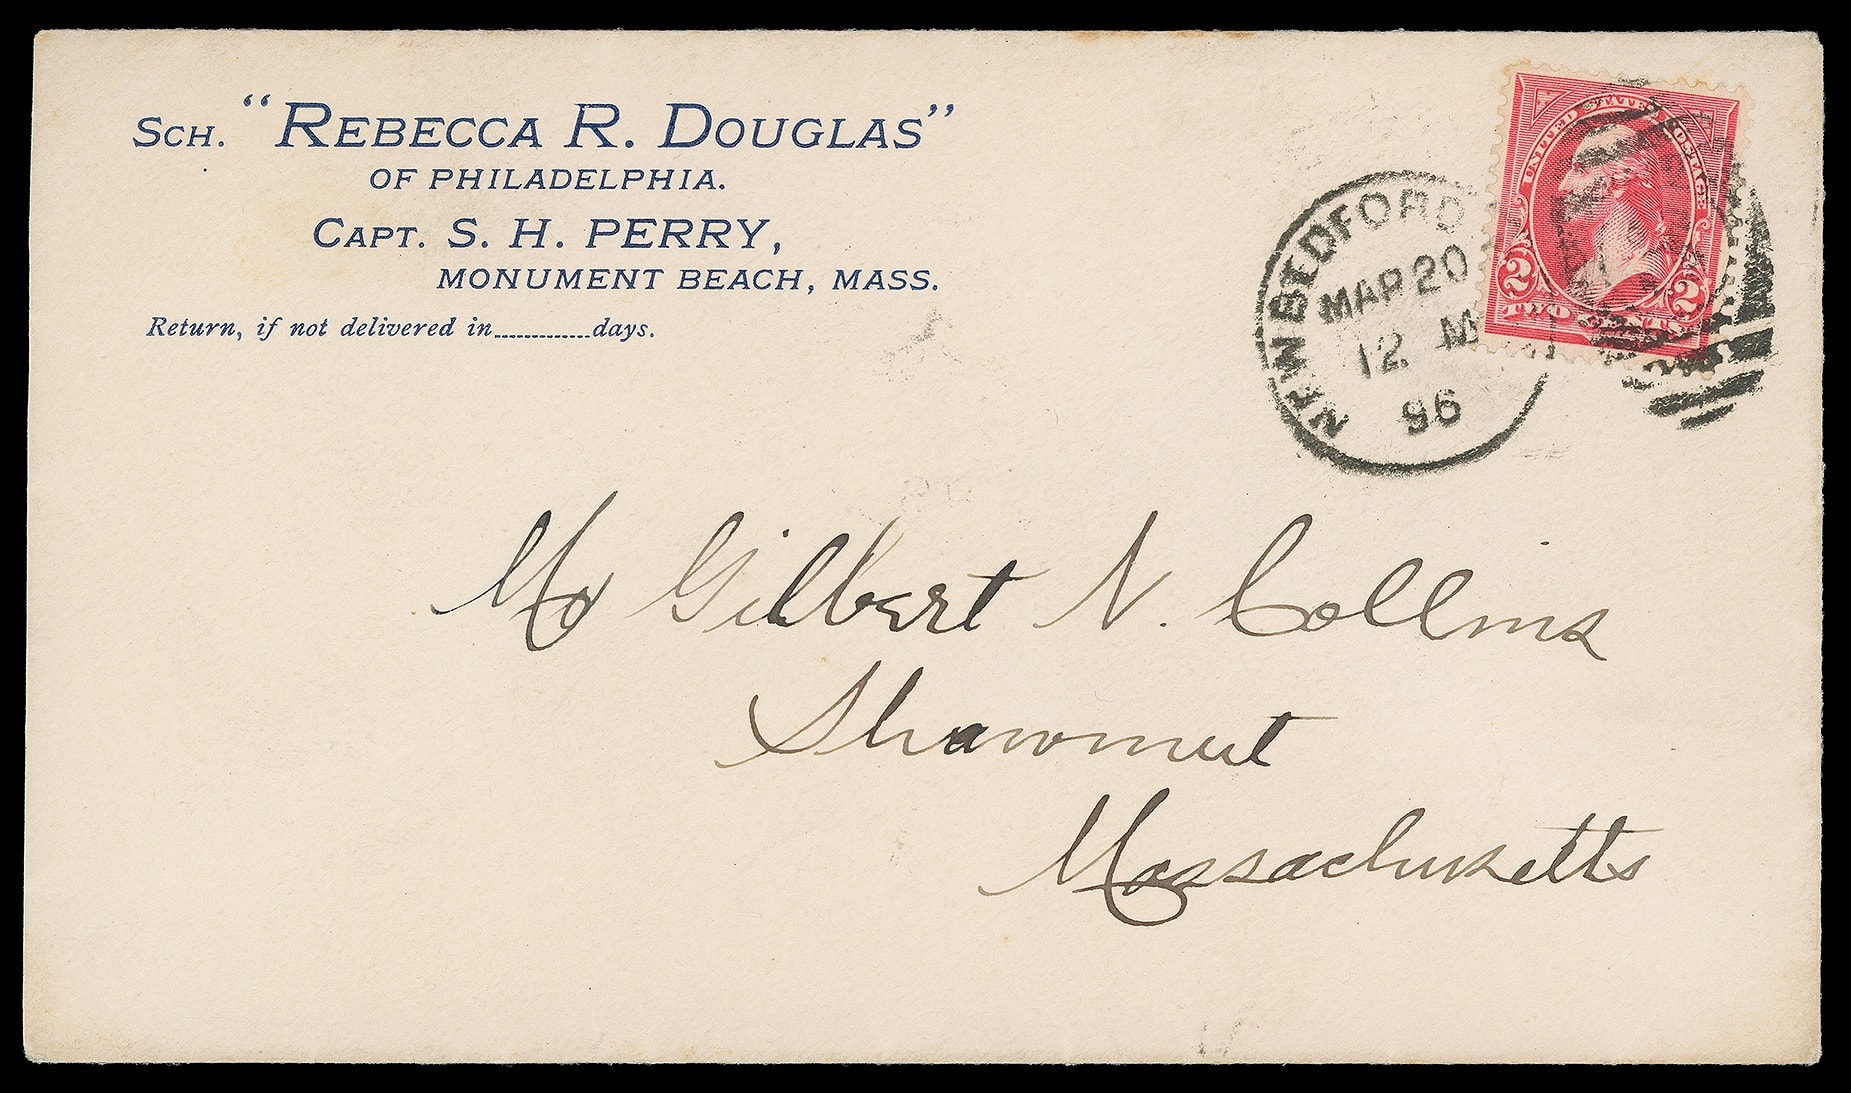 SCH. "REBECCA R. DOUGLAS"
OF PHILADELPHIA.
CAPT. S. H. PERRY,
MONUMENT BEACH, MASS.
Return, if not delivered in............days.
NEW BEDFORD
MAR 20
12 M
96
UNITED STATES POSTAGE
2 2
TWO CENTS
Mr Gilbert N. Collins
Shawmut
Massachusetts